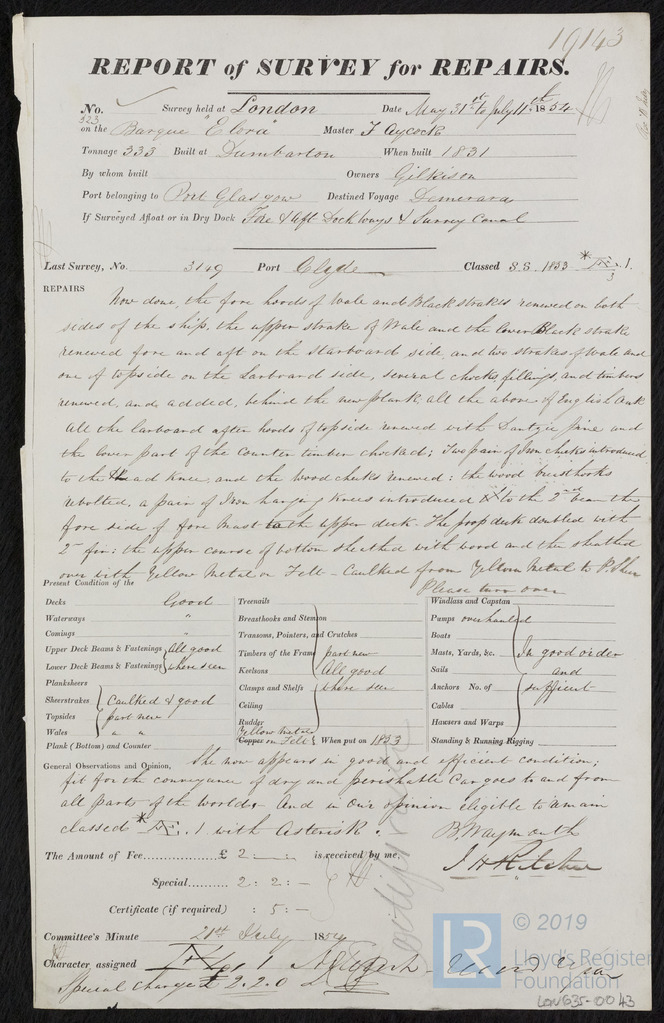 19143
REPORT of SURVEY for REPAIRS.
No. 323 Survey held at London Date May 31st to July 11th 1854
on the Barque "Elora" Master J Aycock
Tonnage 333 Built at Dumbarton When built 1831
By whom built Owners Gilkison
Port belonging to Port Glasgow Destined Voyage Demerara
If Surveyed Afloat or in Dry Dock Fore & Aft Dock ways & Surrey Canal
Last Survey, No. 3149 Port Clyde Classed S.S. 1853 * 1.
REPAIRS
Now done, the fore hoods of Wale and Black strakes renewed on both
sides of the ship, the upper strake of Wale and the lower Black strake
renewed fore and aft on the starboard side, and two strakes of Wale and
one of topside on the Larboard side, several chocks, fillings, and timbers
renewed, and added, behind the new plank, all the above of English Oak
All the larboard after hoods of topside renewed with Dantzic pine and
the lower part of the counter timber chocked; Two pair of Iron cheeks introduced
to the Head Knee, and the wood cheeks renewed: the wood breasthooks
rebolted, a pair of Iron hanging knees introduced to the 2nd beam the
fore side of fore Mast in the upper deck. The poop deck doubled with
2 in fir: the upper course of bottom sheathed with wood and then sheathed
over with Yellow Metal on Felt - Caulked from Yellow Metal to P. Sheer
Please turn over
Present Condition of the
Decks Good
Waterways "
Comings "
Upper Deck Beams & Fastenings All good
Lower Deck Beams & Fastenings where seen
Planksheers
Sheerstrakes Caulked & good
Topsides part new
Wales " "
Plank (Bottom) and Counter
Treenails
Breasthooks and Stemson
Transoms, Pointers, and Crutches
Timbers of the Frame part new
Keelsons All good
Clamps and Shelfs where seen
Ceiling
Rudder
Yellow Metal
Copper on Felt When put on 1853
Windlass and Capstan
Pumps overhauled
Boats
Masts, Yards, &c. In good order
Sails and
Anchors No. of sufficient
Cables
Hawsers and Warps
Standing & Running Rigging
General Observations and Opinion, She now appears in good and efficient condition;
fit for the conveyance of dry and perishable Cargoes to and from
all parts of the world. And in our opinion eligible to remain
classed * 1 with Asterisk.
B. Waymouth
The Amount of Fee £ 2 : - : - is received by me,
J H Ritchie
Special 2 : 2 : -
Certificate (if required) : 5 : -
Committee's Minute 20th July 1854
Character assigned
Special charge £ 2.2.0
© 2019
LR
Lloyd's Register
Foundation
LON635-0043